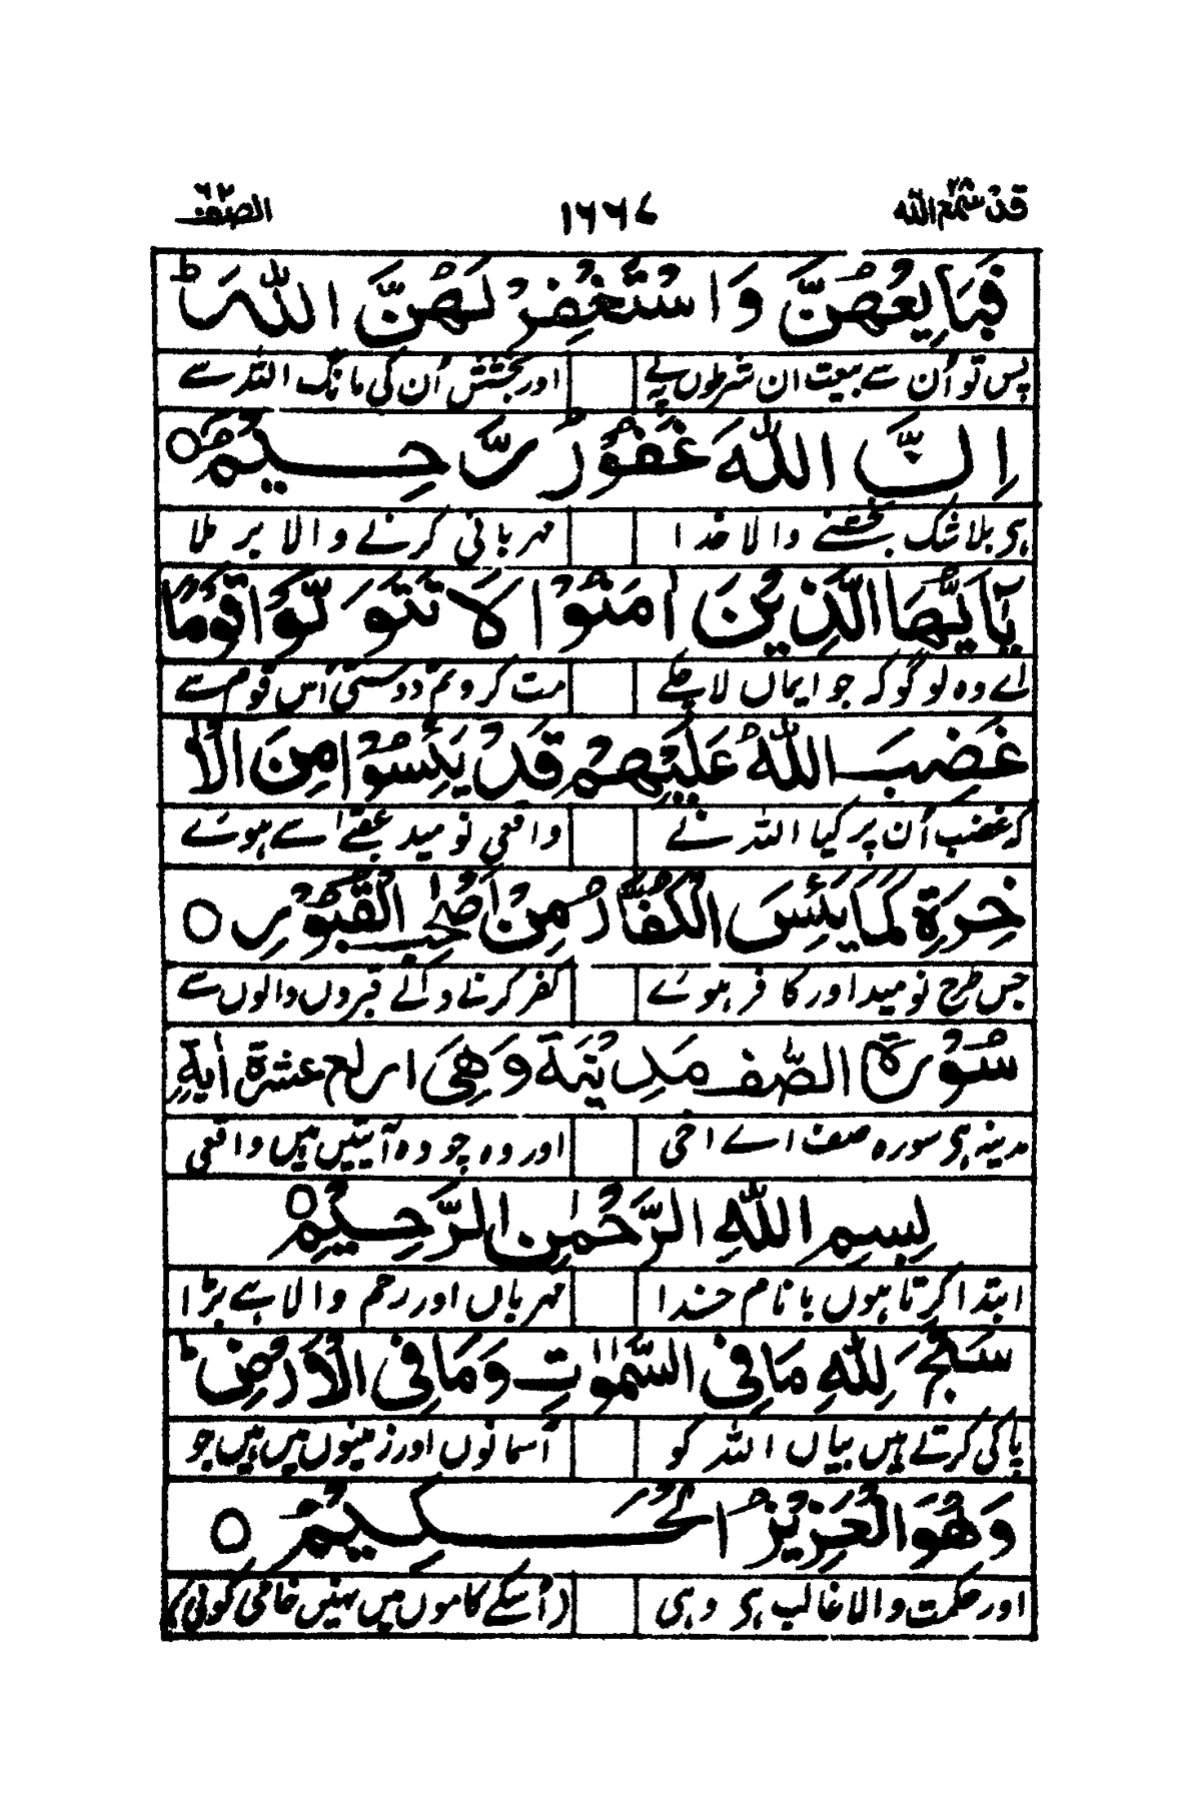 قد سمع الله ٢٨ ١٦٦٧ الصف ٦٢
فَبَايِعْهُنَّ وَاسْتَغْفِرْ لَهُنَّ اللّٰهَ ؕ
پس تو اُن سے بیعت ان شرطوں پہ لے اور بخشش اُن کی مانگ اللہ سے
اِنَّ اللّٰهَ غَفُوْرٌ رَّحِيْمٌ ○
ہی بلا شک بخشنے والا خدا مہربانی کرنے والا بر ملا
يٰۤاَيُّهَا الَّذِيْنَ اٰمَنُوْا لَا تَتَوَلَّوْا قَوْمًا
اے وہ لوگو کہ جو ایماں لا چکے مت کرو تم دوستی اُس قوم سے
غَضِبَ اللّٰهُ عَلَيْهِمْ قَدْ يَئِسُوْا مِنَ الْاٰ
کہ غضب اُن پر کیا اللہ نے واقعی نومید عقبےٰ سے ہوئے
خِرَةِ كَمَا يَئِسَ الْكُفَّارُ مِنْ اَصْحٰبِ الْقُبُوْرِ ○
جس طرح نومید اور کافر ہوئے کفر کرنے والے قبروں والوں سے
سُوْرَةُ الصَّفِّ مَدِيْنَةٌ وَهِيَ اربع عشرة اٰيةِ
مدینہ ہی سورہ صف اے اخی اور وہ چودہ آیتیں ہیں واقعی
بِسْمِ اللّٰهِ الرَّحْمٰنِ الرَّحِيْمِ ○
ابتدا کرتا ہوں با نام خدا مہرباں اور رحم والا ہے بڑا
سَبَّحَ لِلّٰهِ مَا فِي السَّمٰوٰتِ وَمَا فِي الْاَرْضِ ؕ
پاکی کرتے ہیں بیاں اللہ کو آسمانوں اور زمینوں میں ہیں جو
وَهُوَ الْعَزِيْزُ الْحَكِيْمُ ○
اور حکمت والا غالب ہی وہی (اُسکے کاموں میں نہیں خامی کوئی)